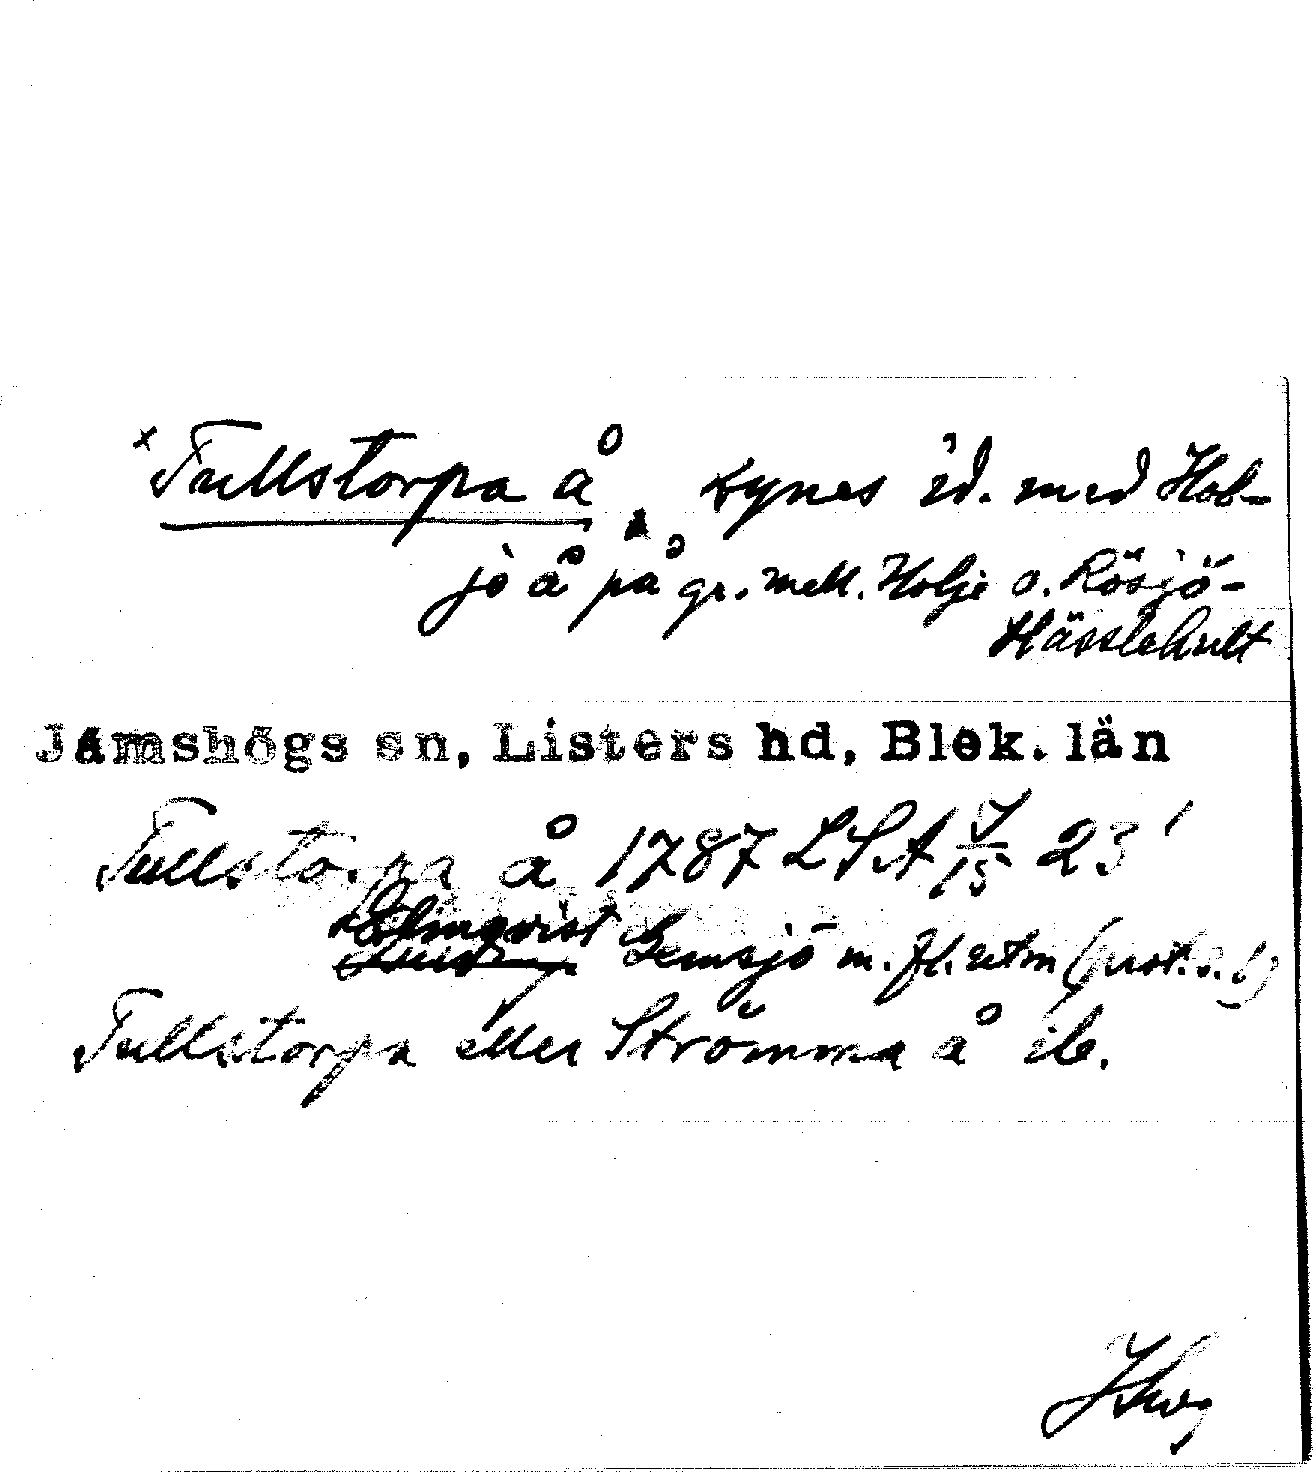 ˣTullstorpa å, synes id. med Hol-
jo å på gr. mell. Holje o. Rösjö-
Hässlehult
Jämshögs sn, Listers hd, Blek. län
Tullstorpa å 1787 LSA J/15 23¹
Holmqvist Gemsjö m. fl. utm (prot. s. 6)
Tullstorpa eller Strömma å ib.